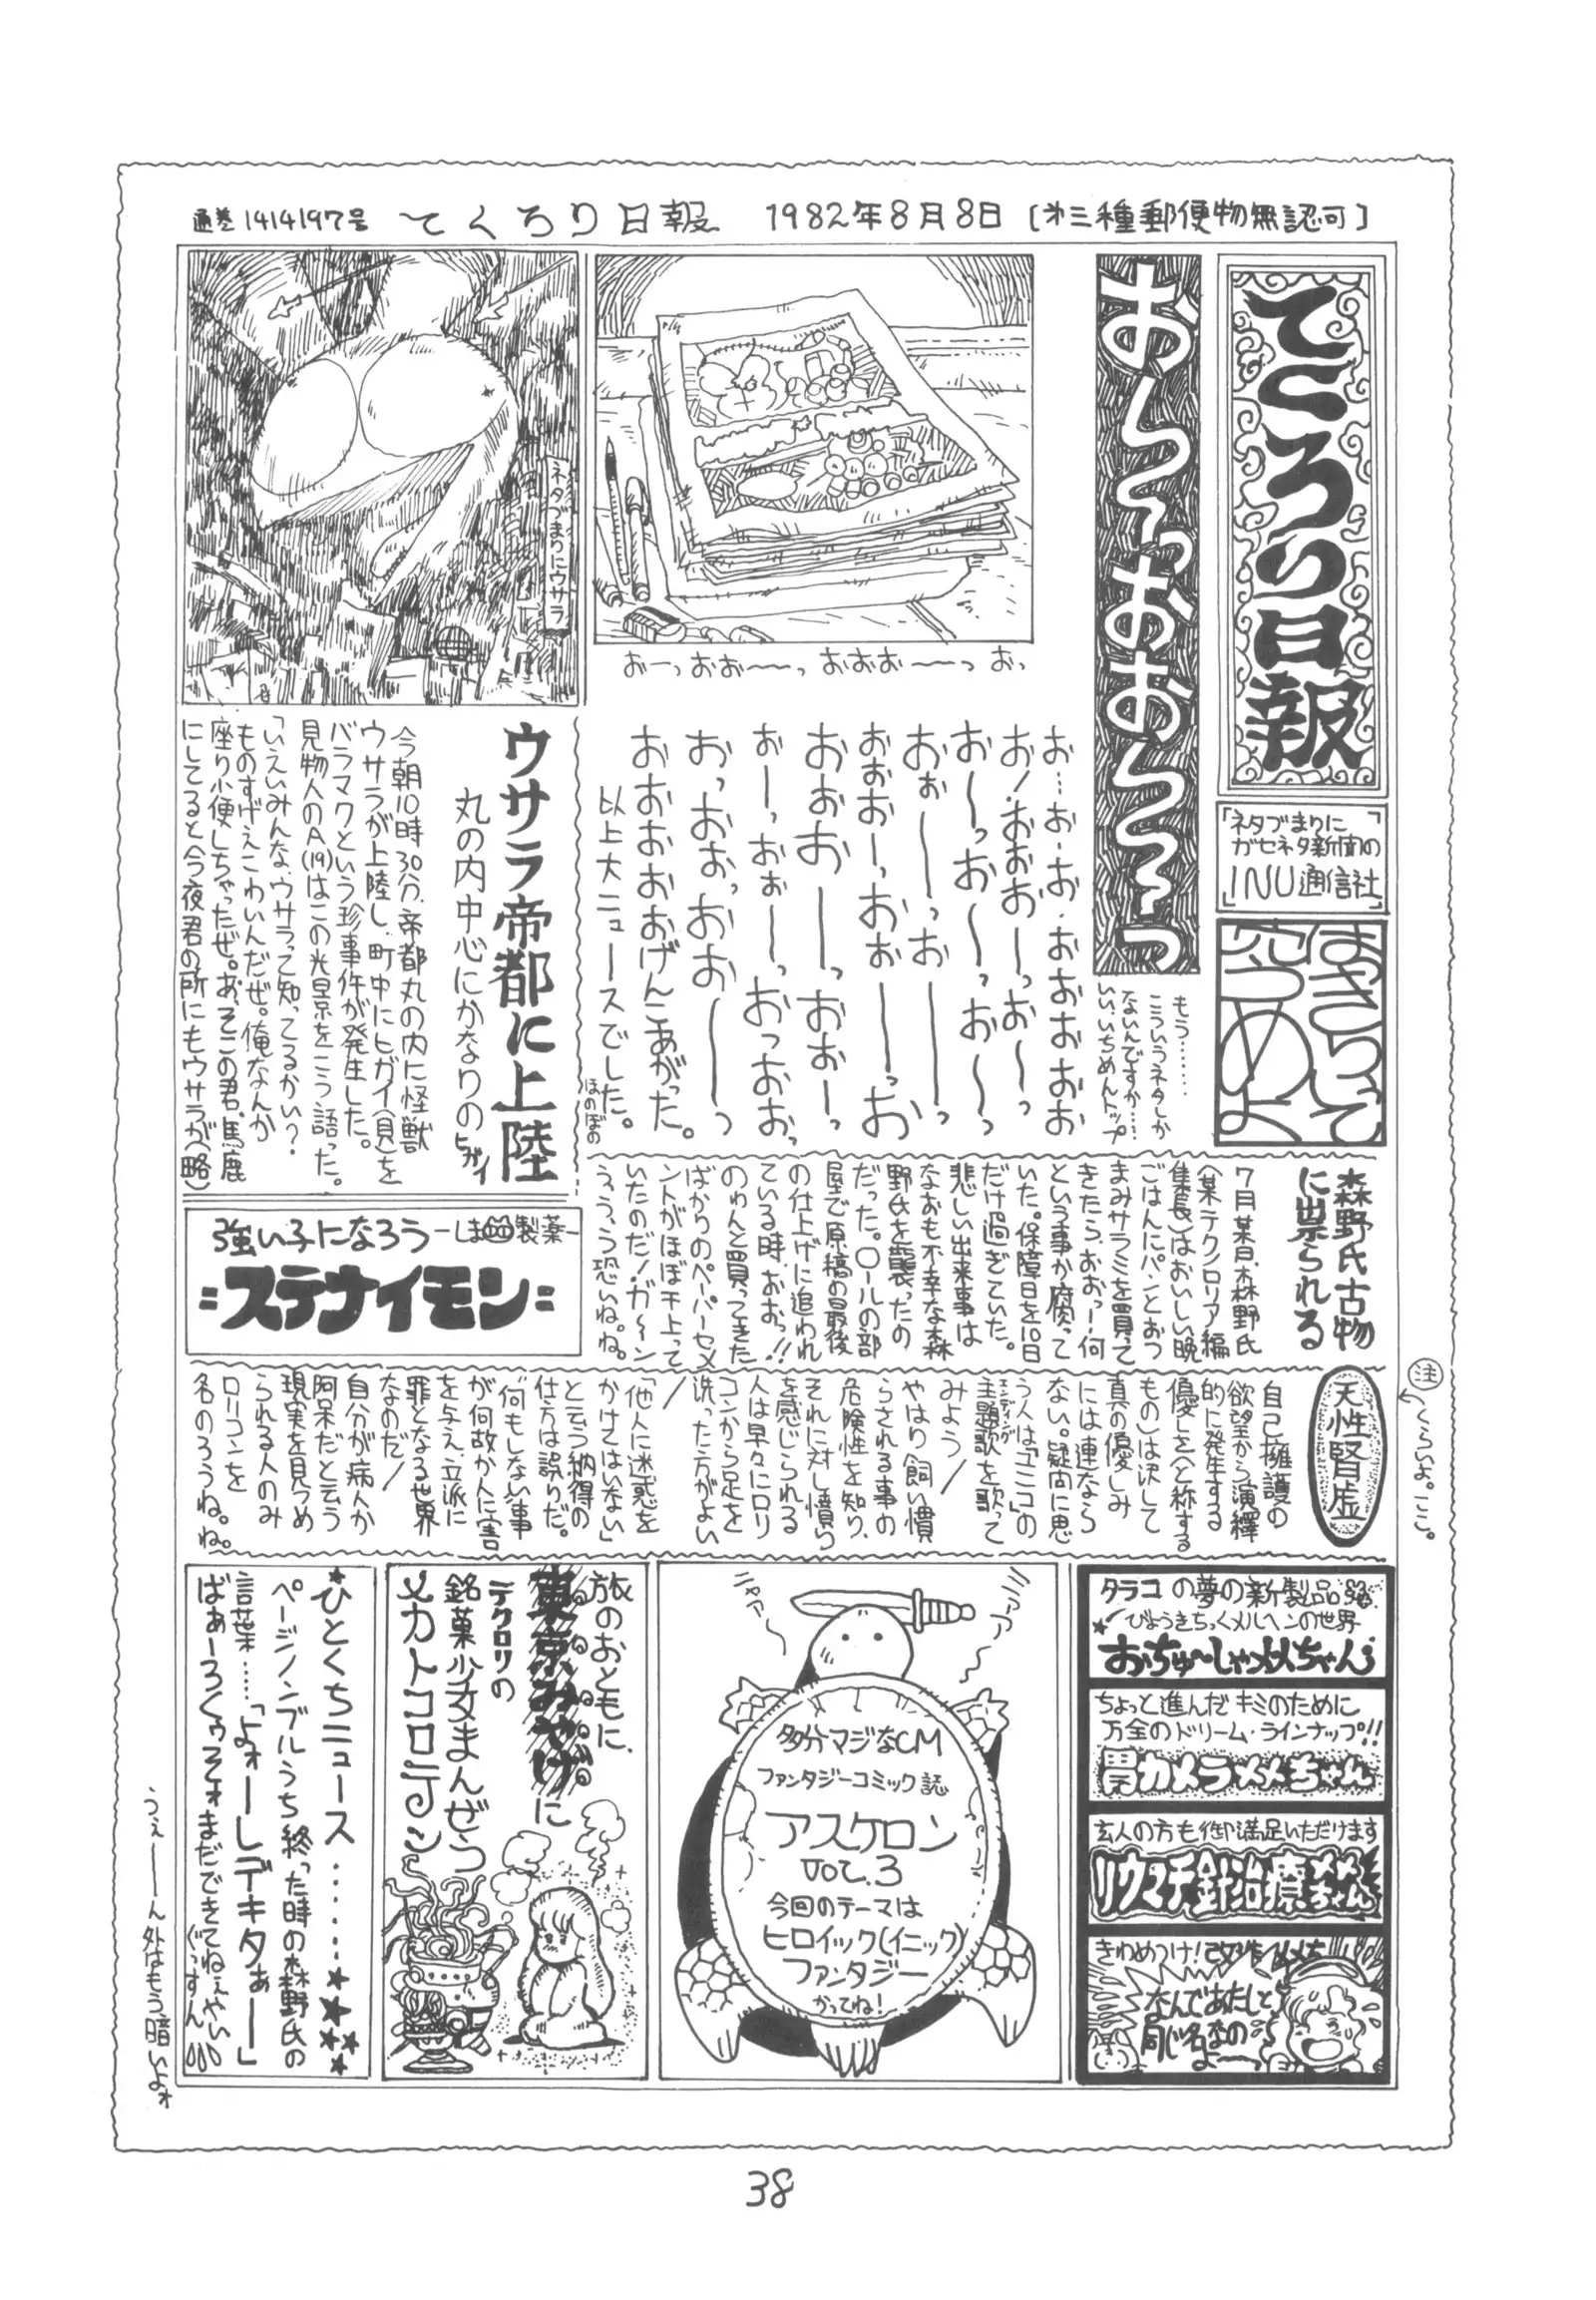 通巻1414197号 てくろり日報 1982年8月8日 [オ三種郵便物無認可]
てくろり日報
「ネタづまりに
ガセネタ新聞の
INU通信社」
はきらって
究めよ
お〜〜っおお〜〜っ
もう……
こういうネタしか
ないんですか……
いい、いちめんトップ
おーっおお〜〜っ おおお〜〜っ おっ
お…お-お・おおおお
お!おおお〜っお〜っ
お〜っお〜〜っお〜〜っ
おぉ〜〜っお〜〜っ
おおお〜っおぉ〜〜っお
おぉお〜〜っおお〜っ
お〜っおぉ〜っおっおお
おっおお、おお〜〜っ
おおおおおげんこあがった。
以上大ニュースでした。
ほのぼの
ネタづまりにウサラ
ウサラ帝都に上陸
丸の内中心にかなりのヒガイ
今朝10時30分、帝都丸の内に怪獣
ウサラが上陸し、町中にヒガイ(貝)を
バラマクという珍事件が発生した。
見物人のA(19)はこの光景をこう語った。
「いえいみんな、ウサラって知ってるかい?
ものすげえこわいんだぜ。俺なんか
座り小便しちゃったぜ。あ、そこの君、馬鹿
にしてると今夜君の所にもウサラが(略)
強い子になろう
製薬
=ステナイモン=
森野氏古物
に祟られる
7月某日、森野氏
(某テクノロリア編
集長)はおいしい晩
ごはんにパンとおつ
まみサラミを買って
きたら、おおっー!何
という事か腐って
いた。保障日を10日
だけ過ぎていた。
悲しい出来事は
なおも不幸な森
野氏を襲ったの
だった。ロールの部
屋で原稿の最後
の仕上げに追われ
ている時、おおっ!!
のゎんと買ってきた
ばかりのペーパーセメ
ントがほぼ干上って
いたのだ!ガ〜ン
ううう、恐いね。ね。
注
←くらいよ。ここ。
天性賢虚
自己擁護の
欲望から演繹
的に発生する
優しさ〈と称する
もの〉は決して
真の優しみ
には連なら
ない。疑問に思
う人は「ユニコ」の
主題歌を歌って
エンディング
みよう/
やはり飼い慣
らされる事の
危険性を知り、
それに対し憤り
を感じられる
人は早々にロリ
コンから足を
洗った方がよい
/
「他人に迷惑を
かけてはいない」
と云う納得の
仕方は誤りだ。
何もしない事
が何故か人に害
を与え、立派に
罪となる世界
なのだ/
自分が病人か
阿呆だと云う
現実を見つめ
られる人のみ
ロリコンを
名のろうね。ね。
タラコの夢の新製品
びょうきちっくメルヘンの世界
おちゅ〜しゃメメちゃん
ちょっと進んだキミのために
万全のドリーム・ラインナップ!!
胃カメラメメちゃん
玄人の方も御満足いただけます
リウマチ針治療
きわめつけ!改作
なんであたしと
同じ名なの
よ〜〜
ニャァ〜
多分マジなCM
ファンタジーコミック誌
アスケロン
VOL.3
今回のテーマは
ヒロイック(イニック)
ファンタジー
かってね!
旅のおともに、
東京みやげに
テクロリの
銘菓少女まんぜう
メカトコロテン
★ひとくちニュース……★★★★★
ページノンブルうち終った時の森野氏の
言葉……「よォーしデキタぁー」
ばぁーろくゥそォまだできてねぇやい
(ぐっすん)
うえーーん外はもう暗いよォ
38